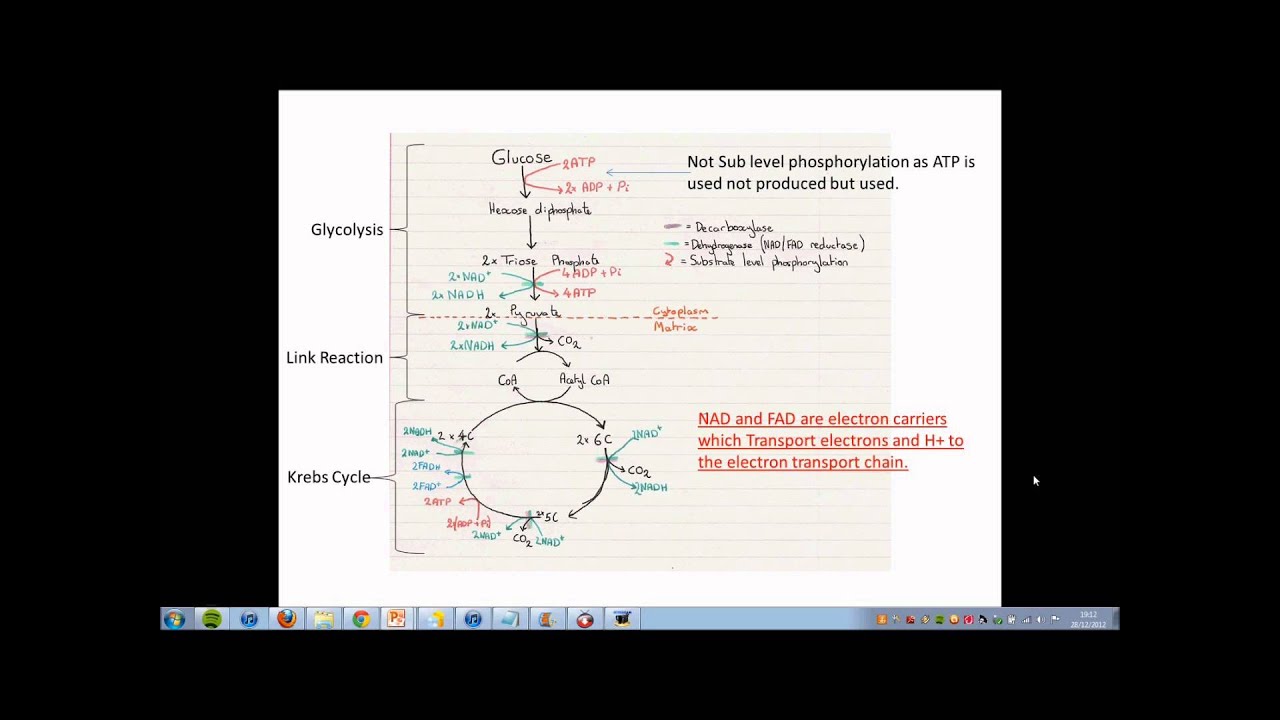 Glucose
2ATP
2x ADP + Pi
Not Sub level phosphorylation as ATP is
used not produced but used.
Hexose diphosphate
Glycolysis
= Decarboxylase
= Dehydrogenase (NAD/FAD reductase)
= Substrate level phosphorylation
2x Triose Phosphate
2xNAD+
4 ADP + Pi
2x NADH
4ATP
2x Pyruvate
Cytoplasm
Matrix
2xNAD+
2xNADH
CO2
Link Reaction
CoA
Acetyl CoA
NAD and FAD are electron carriers
which Transport electrons and H+ to
the electron transport chain.
2NADH
2 x 4C
2 x 6C
2NAD+
2NAD+
CO2
2NADH
2FADH
2FAD+
Krebs Cycle
2ATP
2(ADP+Pi)
2x 5C
2NAD+
CO2
2NAD+
19:12
28/12/2012